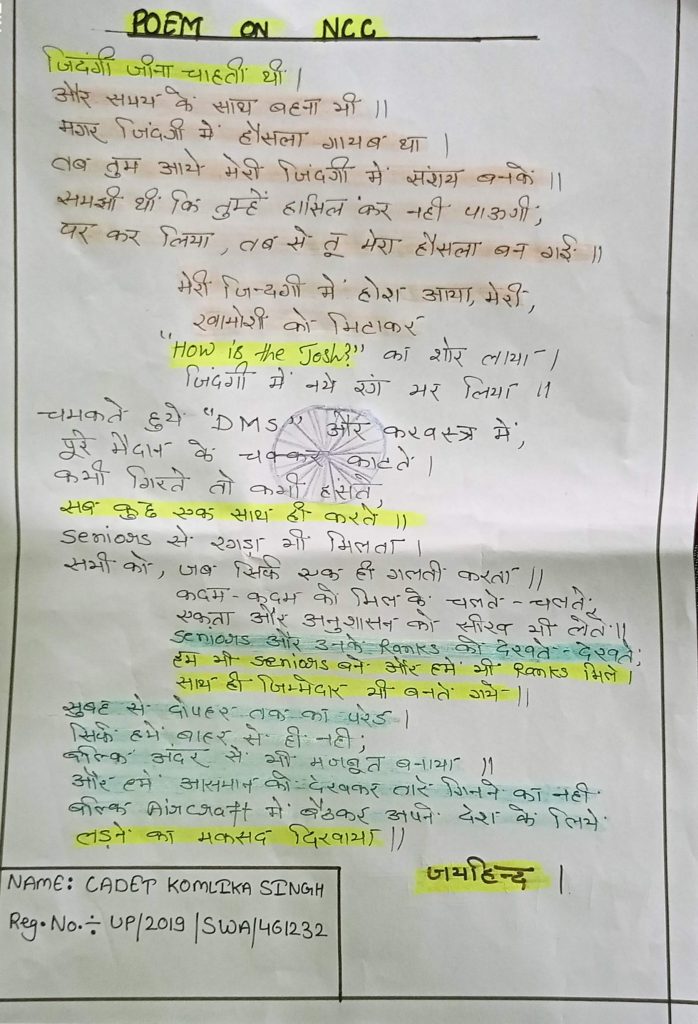 POEM ON NCC
जिदंगी जीना चाहती थी |
और समय के साथ बहना भी ||
मगर जिंदगी में हौसला गायब था |
तब तुम आये मेरी जिंदगी में संशय बनके ||
समझी थी कि तुम्हें हासिल कर नही पाऊगी,
पर कर लिया, तब से तू मेरा हौसला बन गई ||
मेरी जिन्दगी में होश आया, मेरी,
खामोशी को मिटाकर
"How is the Josh?" का शोर लाया |
जिंदगी में नये रंग भर लिया ||
चमकते हुये "DMS" और करवस्त्र में,
पूरे मैदान के चक्कर काटते |
कभी गिरते तो कभी हंसते,
सब कुछ एक साथ ही करते ||
seniors से रगड़ा भी मिलता |
सभी को, जब सिर्फ एक ही गलती करता ||
कदम-कदम को मिल के चलते-चलते,
एकता और अनुशासन को सीख भी लेते ||
seniors और उनके Ranks को देखते-देखते,
हम भी seniors बने और हमे भी Ranks मिले |
साथ ही जिम्मेदार भी बनते गये ||
सुबह से दोपहर तक का परेड |
सिर्फ हमें बाहर से ही नही,
बल्कि अंदर से भी मजबूत बनाया ||
और हमें आसमान को देखकर तारे गिनने का नही
बल्कि Aircraft में बैठकर अपने देश के लिये
लड़ने का मकसद दिखाया ||
जयहिन्द |
NAME: CADET KOMLIKA SINGH
Reg.No.÷ UP/2019/SWA/461232